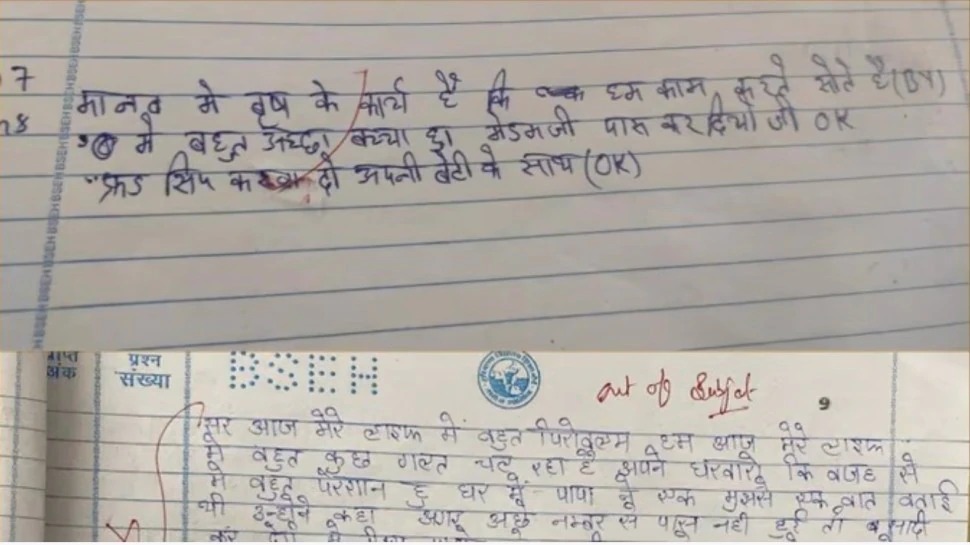 7
मानव मे वृष के कार्य है कि हम काम करते सोते है (BY)
78
मे बहुत अच्छा बच्चा हु। मेडमजी पास कर दियो जी OK
फ्रड सिप करवा दो अपनी बेटी के साथ (OK)
BSEH BSEH BSEH BSEH BSEH BSEH BSEH
प्राप्त अंक
प्रश्न संख्या
BSEH
out of Subject
9
सर आज मेरे लाइफ में बहुत पिरोबलम हम आज मेरे लाइफ
मे बहुत कुछ गलत चल रहा है अपने घरवारो कि वजह से
मे बहुत परेशान हु घर में पापा ने एक मुझसे एक बात बताई
थी उन्होने कहा अगर अछे नम्बर से पास नही हुई तो